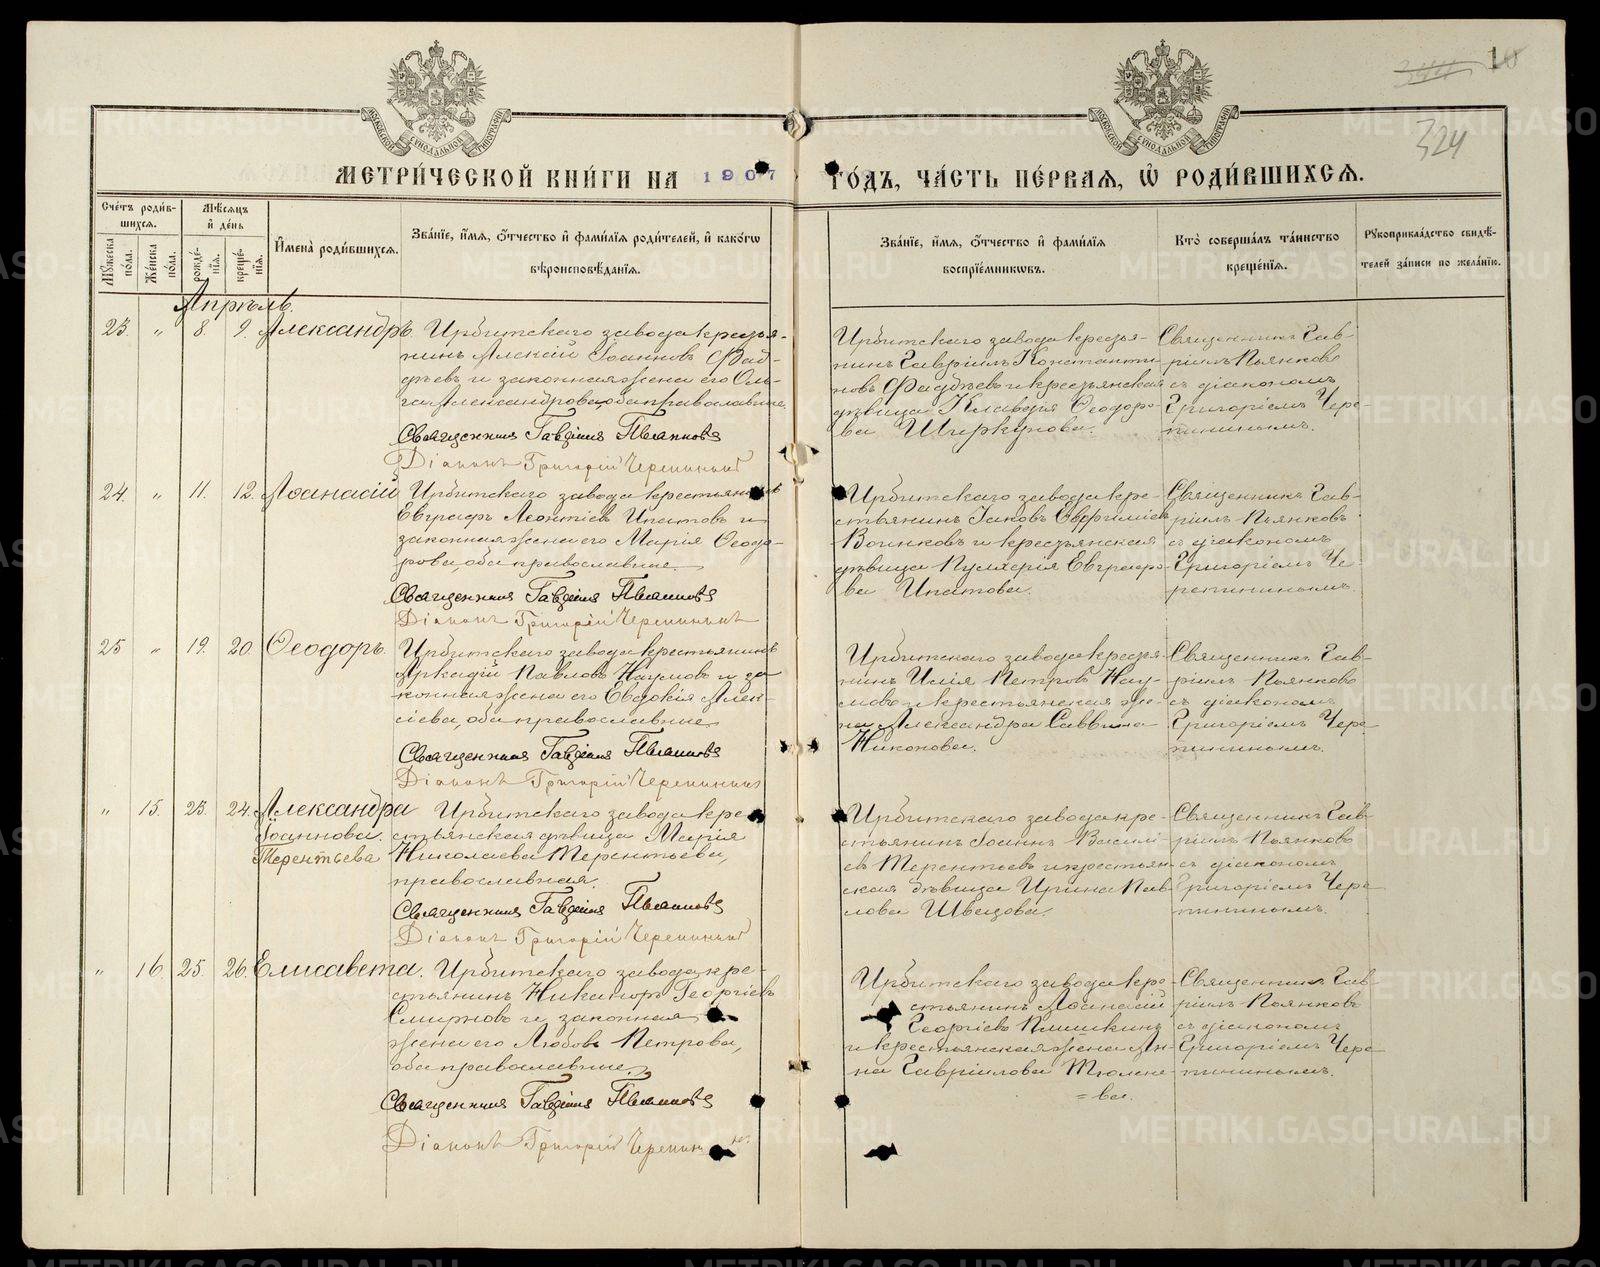 МОСКОВСКОЙ СѴНОДАЛЬНОЙ ТИПОГРАФІИ
МОСКОВСКОЙ СѴНОДАЛЬНОЙ ТИПОГРАФІИ
10
324
МЕТРИ́ЧЕСКОЙ КНИ́ГИ НА 1907 ГО́ДЪ, ЧА́СТЬ ПЕ́РВАЯ, Ѽ РОДИ́ВШИХСѦ.
Сче́тъ роди́в-
шихся.
Му́жеска по́ла.
Же́нска по́ла.
Мѣ́сѧцъ
и҆ де́нь
рожде́-нїѧ.
креще́-нїѧ.
И҆мена̀ роди́вшихсѧ.
Зва́нїе, и҆́мѧ, о҆́тчество и҆ фами́лїѧ роди́телей, и҆ како́гѡ
вѣроисповѣ́данїѧ.
Зва́нїе, и҆́мѧ, о҆́тчество и҆ фами́лїѧ
воспрїе́мникѡвъ.
Кто̀ соверша́лъ та́инство
креще́нїѧ.
Рꙋкоприкла́дство свидѣ́-
телей за́писи по жела́нїю.
Апрѣль.
23. „ 8. 9. Александръ. Ирбитскаго завода крестья-
нинъ Алексій Іоанновъ Фад-
дѣевъ и законная жена его Оль-
га Александрова, оба православные.
Священникъ Гавріилъ Пьянковъ
Діаконъ Григорій Черепининъ
Ирбитскаго завода крестья-
нинъ Гавріилъ Константи-
новъ Фаддѣевъ и крестьянская
дѣвица Клавдія Ѳеодоро-
ва Ширкунова.
Священникъ Гав-
ріилъ Пьянковъ
съ діакономъ
Григоріемъ Чере-
пининымъ.
24. „ 11. 12. Аѳанасій Ирбитскаго завода крестьянинъ
Евграфъ Леонтіевъ Ипатовъ и
законная жена его Марія Ѳеодо-
рова, оба православные.
Священникъ Гавріилъ Пьянковъ
Діаконъ Григорій Черепининъ
Ирбитскаго завода кре-
стьянинъ Іаковъ Евфиміевъ
Воинковъ и крестьянская
дѣвица Пульхерія Евграфо-
ва Ипатова.
Священникъ Гав-
ріилъ Пьянковъ
съ діакономъ
Григоріемъ Че-
репининымъ.
25 „ 19. 20. Ѳеодоръ. Ирбитскаго завода крестьянинъ
Аркадій Павловъ Наумовъ и за-
конная жена его Евдокія Алек-
сіева, оба православные.
Священникъ Гавріилъ Пьянковъ
Діаконъ Григорій Черепининъ
Ирбитскаго завода крестья-
нинъ Илія Петровъ Нау-
мовъ и крестьянская же-
на Александра Саввина
Никонова.
Священникъ Гав-
ріилъ Пьянковъ
съ діакономъ
Григоріемъ Чере-
пининымъ.
„ 15. 23. 24. Александра Ирбитскаго завода кре-
Іоаннова. стьянская дѣвица Марія
Терентьева Николаева Терентьева,
православная.
Священникъ Гавріилъ Пьянковъ
Діаконъ Григорій Черепининъ
Ирбитскаго завода кре-
стьянинъ Іоаннъ Васили-
евъ Терентьевъ и крестьян-
ская дѣвица Ирина Пав-
лова Швецова.
Священникъ Гав-
ріилъ Пьянковъ
съ діакономъ
Григоріемъ Чере-
пининымъ.
„ 16. 25. 26. Елисавета. Ирбитскаго завода кре-
стьянинъ Никаноръ Георгіевъ
Смирновъ и законная
жена его Любовь Петрова,
оба православные.
Священникъ Гавріилъ Пьянковъ
Діаконъ Григорій Черепининъ
Ирбитскаго завода кре-
стьянинъ Аѳанасій
Георгіевъ Пишкинъ
и крестьянская жена Ан-
на Гавріилова Тюлене-
=ва.
Священникъ Гав-
ріилъ Пьянковъ
съ діакономъ
Григоріемъ Чере-
пининымъ.